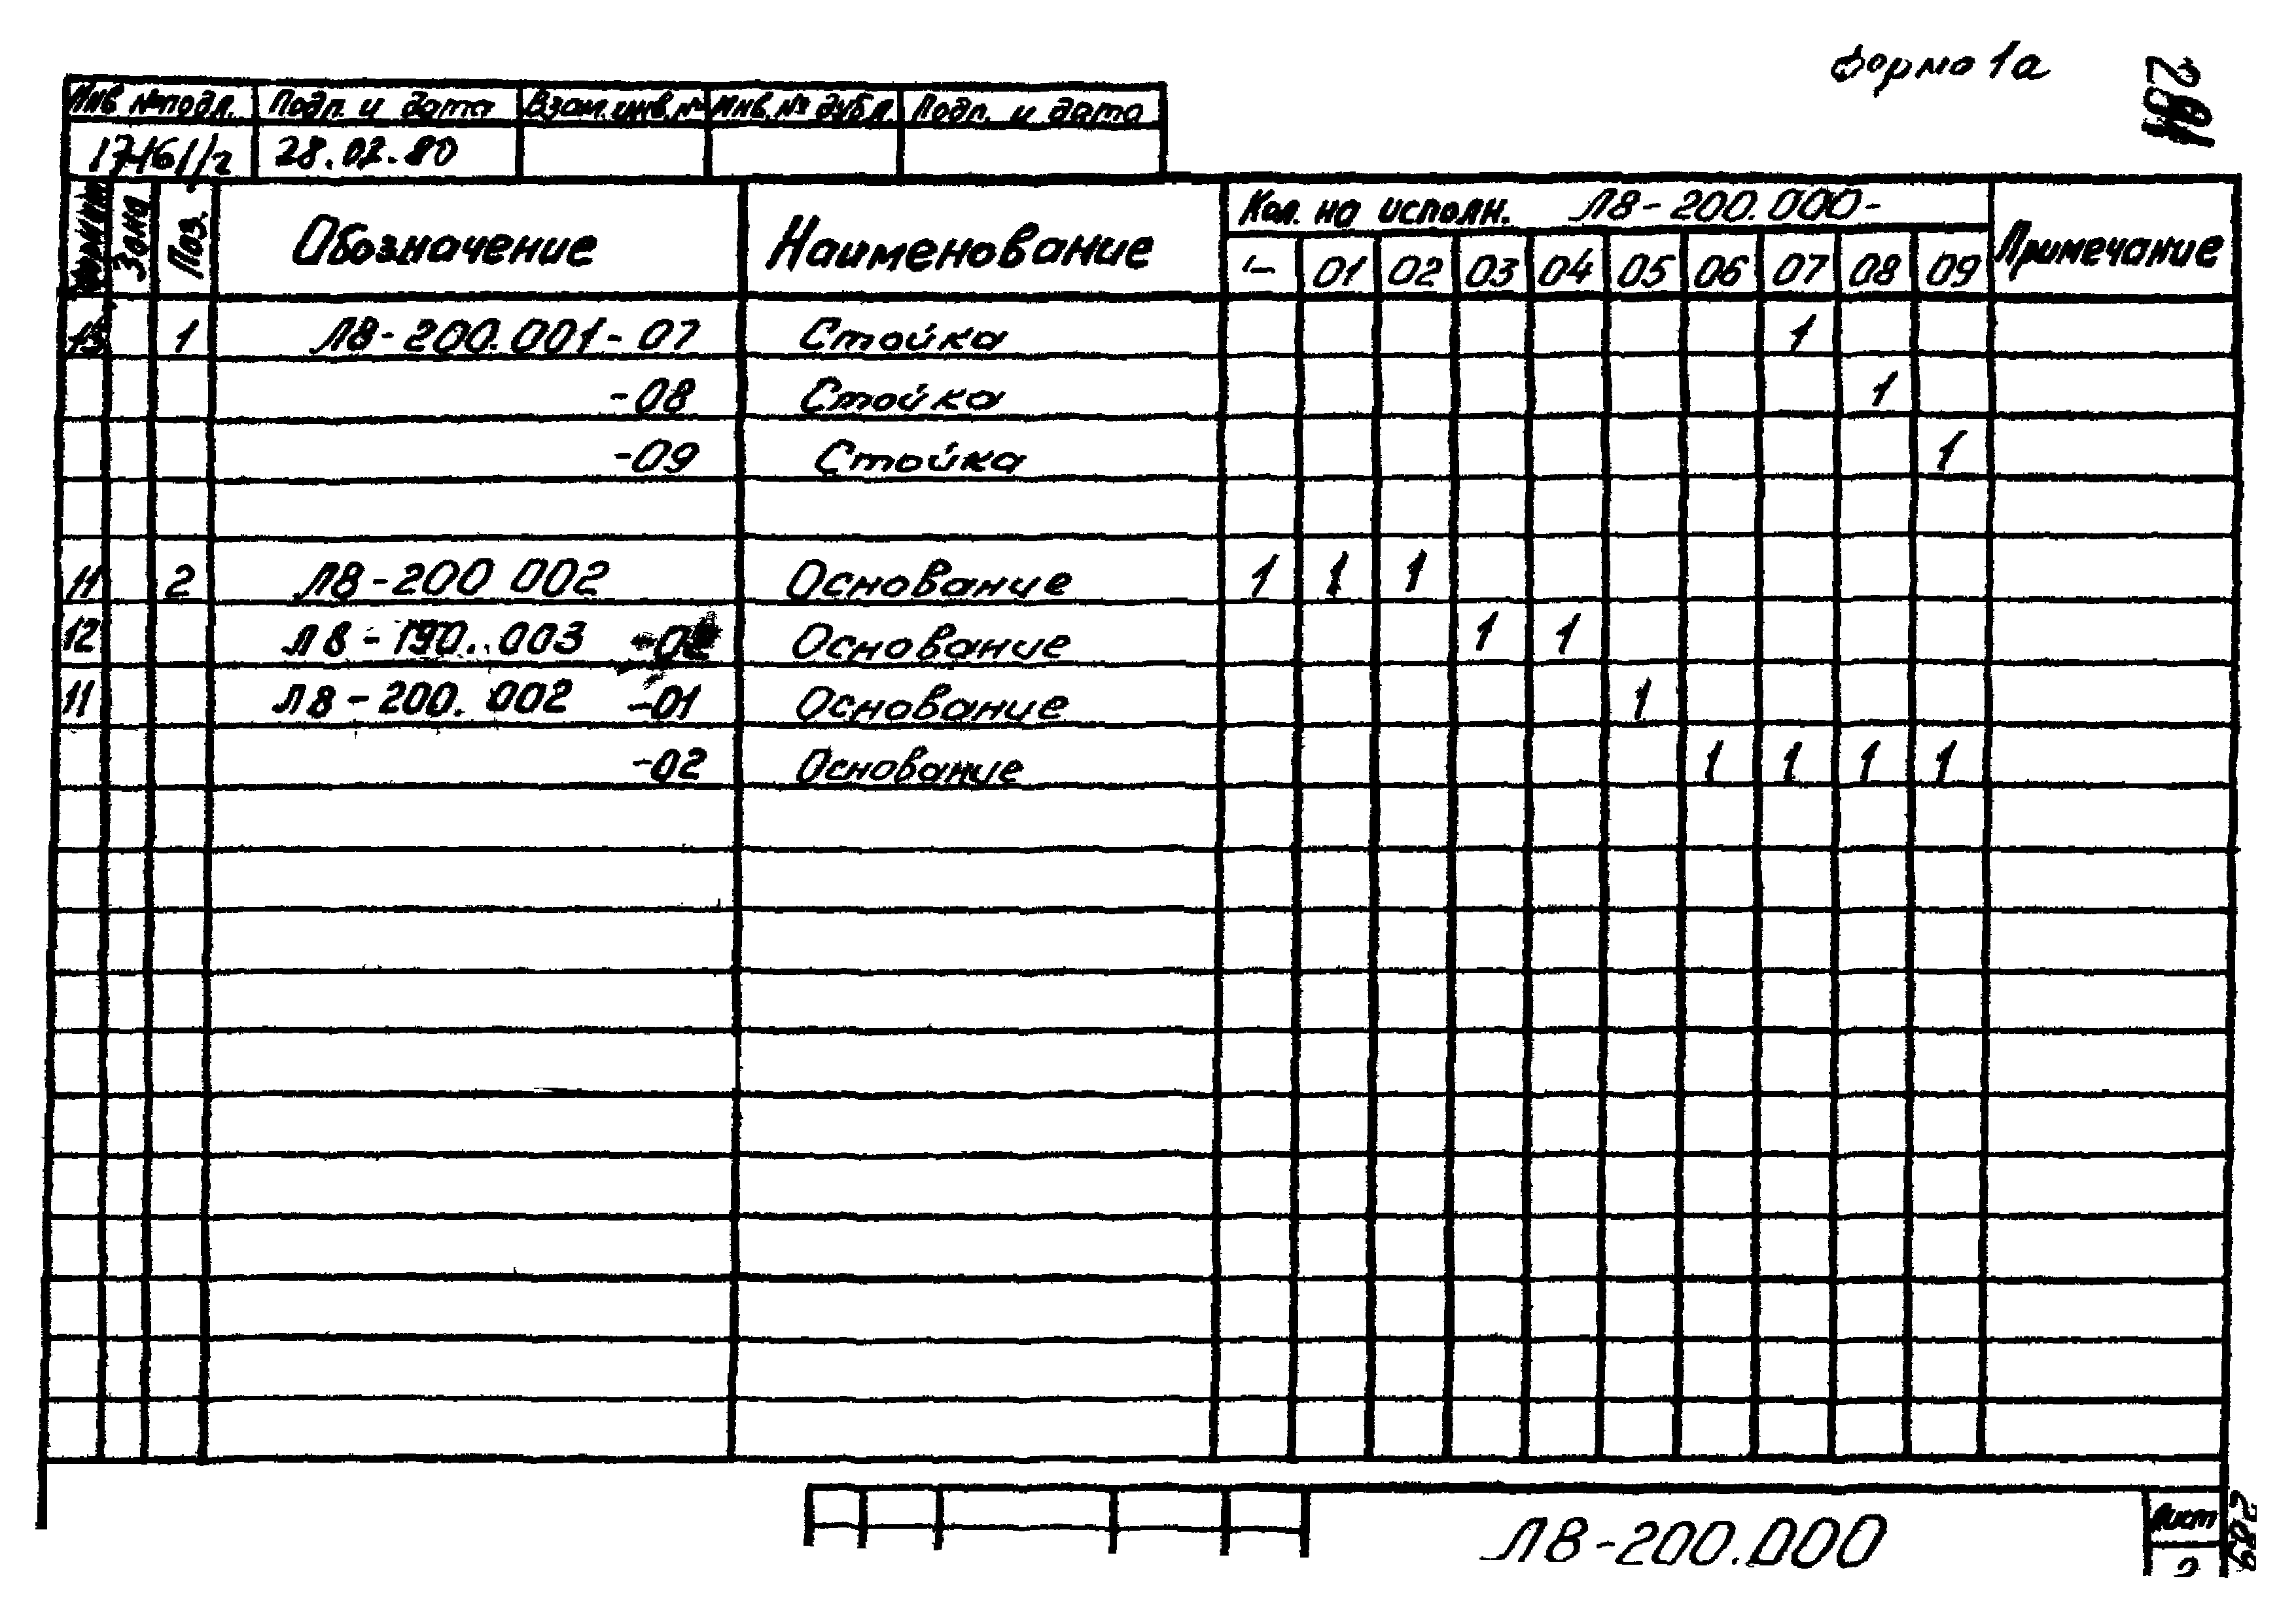 Форма 1а
Инв №подл. Подп. и дата Взам.инв.№ Инв.№ дубл. Подп. и дата
1746/2 28.02.80
Формат Зона Поз. Обозначение Наименование Кол. на исполн. Л8-200.000- Примечание
- 01 02 03 04 05 06 07 08 09
13 1 Л8-200.001-07 Стойка 1
-08 Стойка 1
-09 Стойка 1
11 2 Л8-200 002 Основание 1 1 1
12 Л8-190.003 Основание 1 1
11 Л8-200.002 -01 Основание 1
-02 Основание 1 1 1 1
Л8-200.000
Лист
2
289